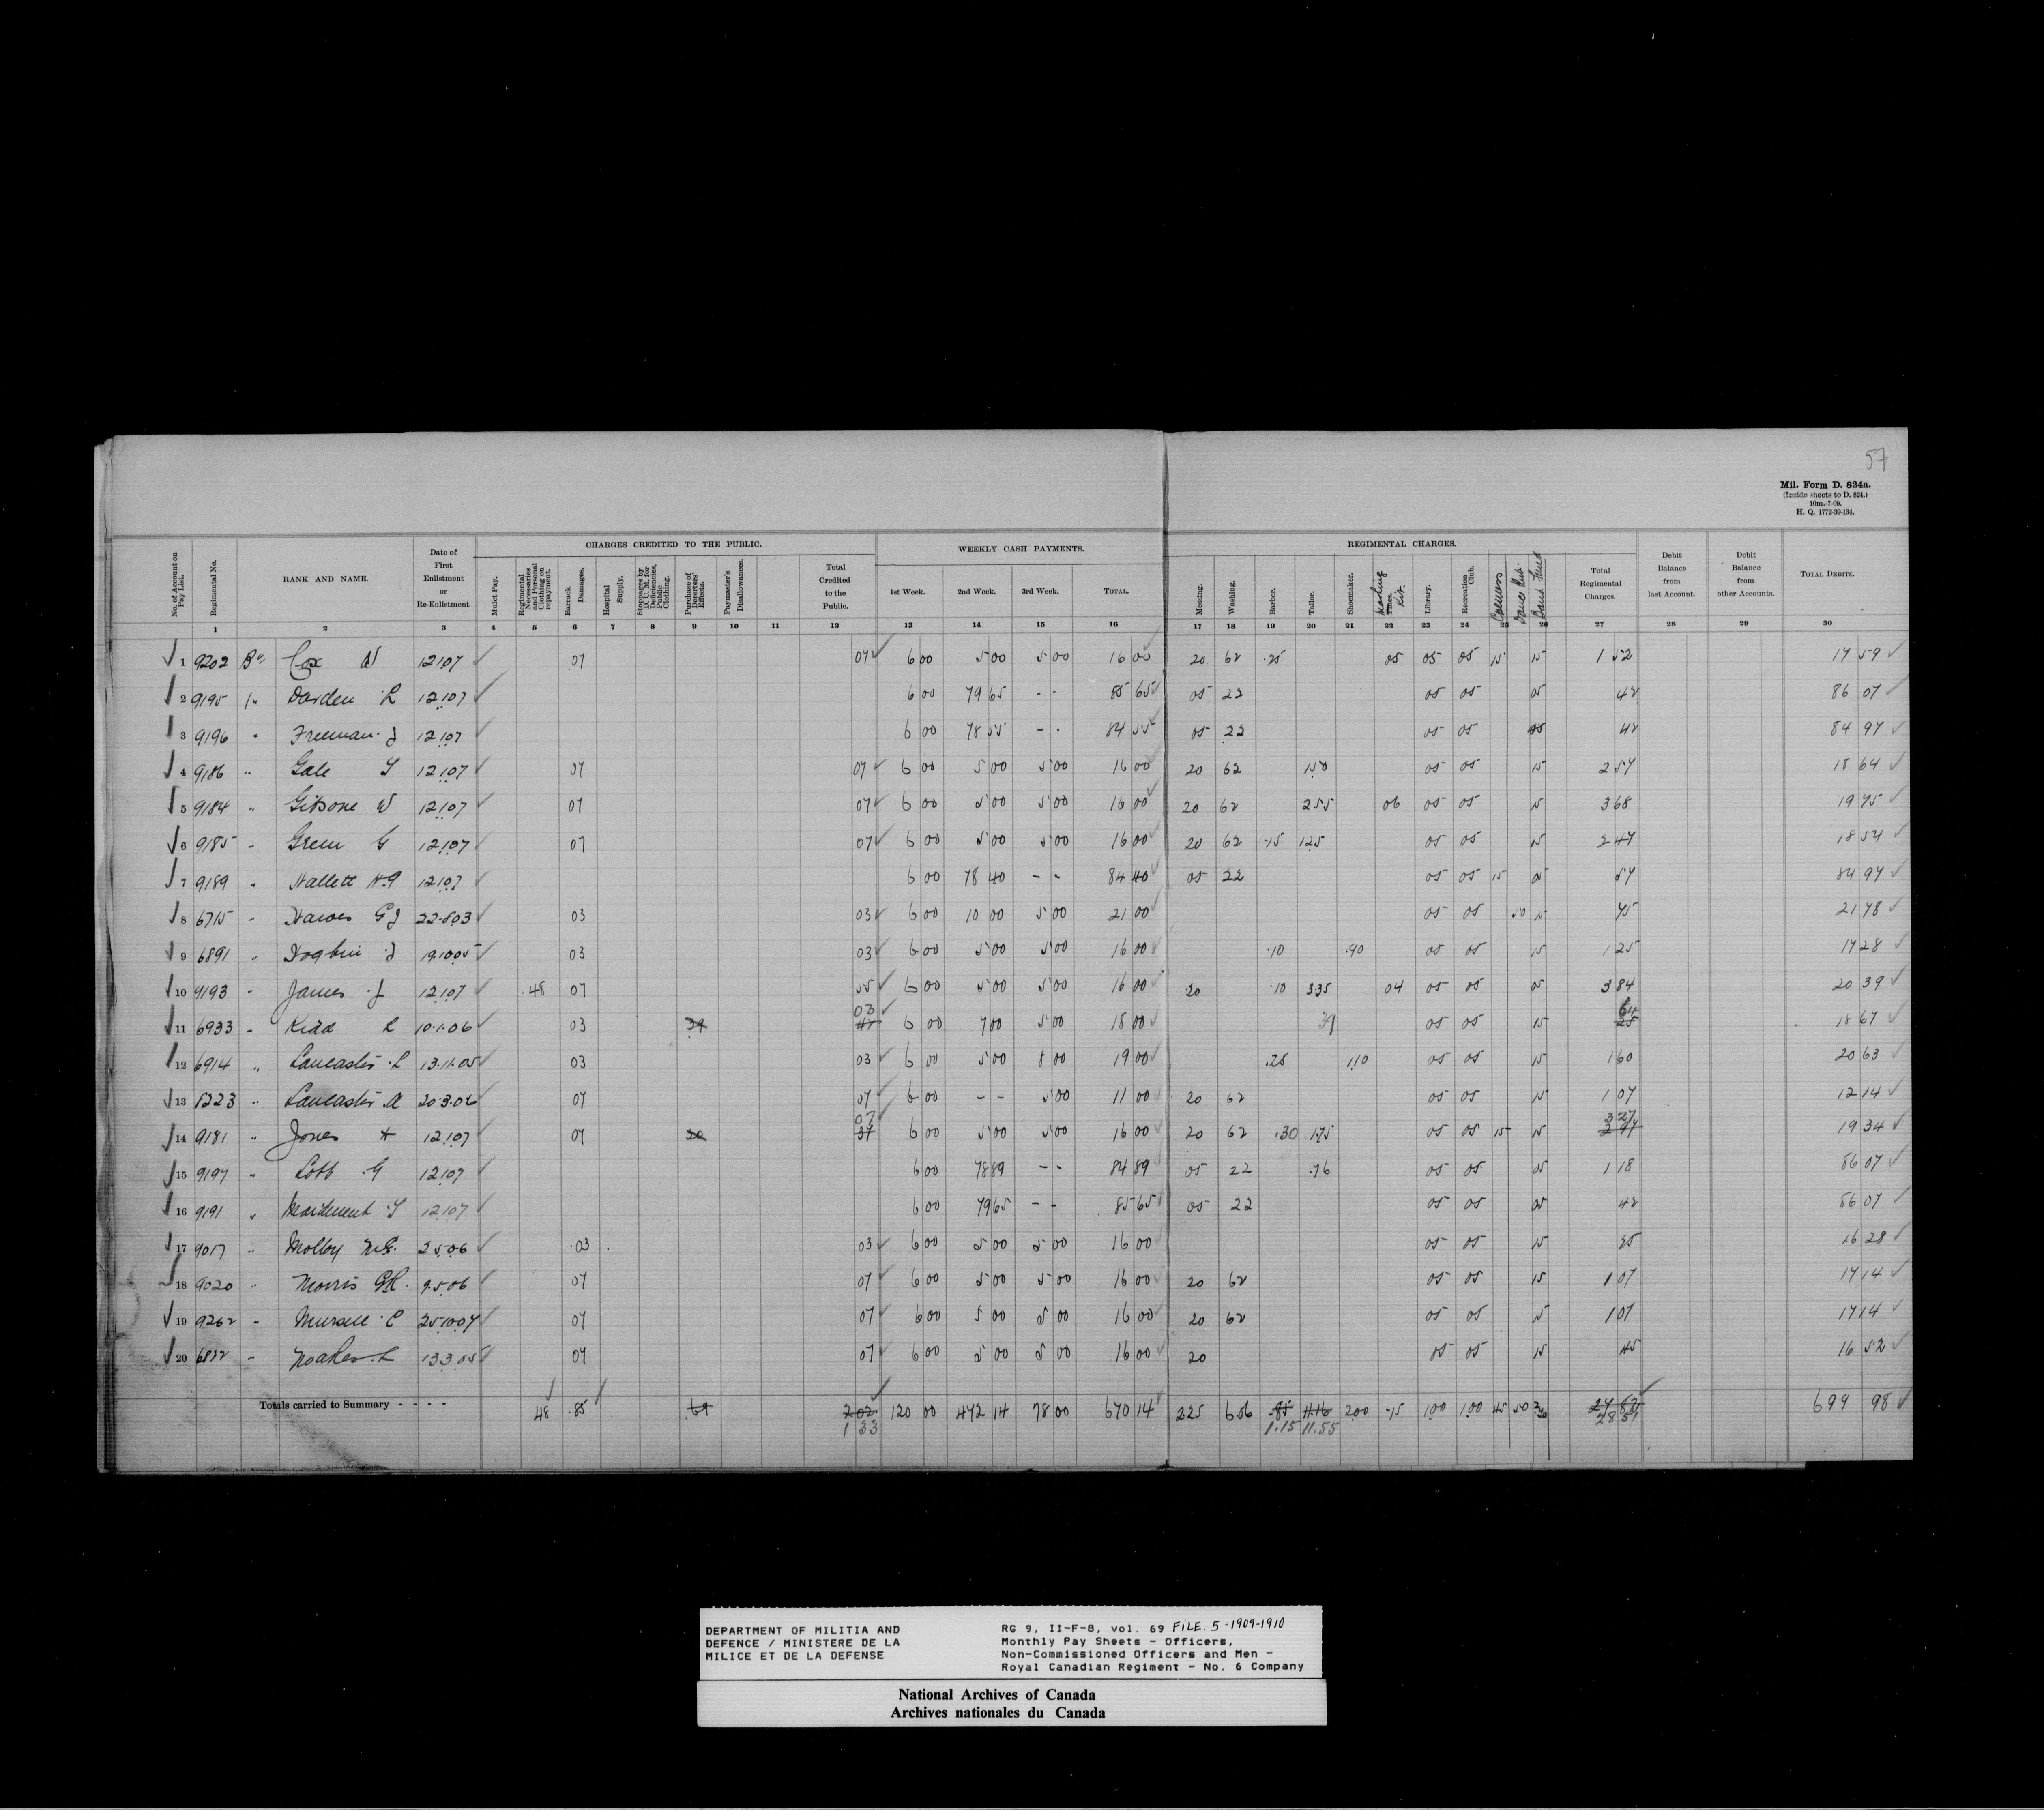 57
Mil. Form D. 824a.
(Inside sheets to D. 824.)
10m.-7-09.
H. Q. 1772-39-134.
CHARGES CREDITED TO THE PUBLIC. WEEKLY CASH PAYMENTS. REGIMENTAL CHARGES.
No. of Account on Pay List. Regimental No. RANK AND NAME. Date of First Enlistment or Re-Enlistment Mulct Pay. Regimental Necessaries and Personal Clothing on repayment. Barrack Damages. Hospital Supply. Stoppages by D. C. M. for Deficiencies, Public Clothing. Purchase of Deserters' Effects. Paymaster's Disallowances. Total Credited to the Public. 1st Week. 2nd Week. 3rd Week. TOTAL. Messing. Washing. Barber. Tailor. Shoemaker. Marking Kit. Library. Recreation Club. Dance Sub. Band Fund Total Regimental Charges. Debit Balance from last Account. Debit Balance from other Accounts. TOTAL DEBITS.
1 2 3 4 5 6 7 8 9 10 11 12 13 14 15 16 17 18 19 20 21 22 23 24 25 26 27 28 29 30
1 9202 Cox W 12.1.07 07 07 6 00 5 00 5 00 16 00 20 62 .25 05 05 05 15 15 1 52 17 59
2 9195 Darden L 12.1.07 6 00 79 65 - - 85 65 05 22 05 05 05 42 86 07
3 9196 " Freeman J 12.1.07 6 00 78 55 - - 84 55 05 22 05 05 05 42 84 97
4 9186 " Gale T 12.1.07 07 07 6 00 5 00 5 00 16 00 20 62 1 50 05 05 15 2 57 18 64
5 9184 " Gibsone W 12.1.07 07 07 6 00 5 00 5 00 16 00 20 62 2 55 06 05 05 15 3 68 19 75
6 9185 " Green G 12.1.07 07 07 6 00 5 00 5 00 16 00 20 62 .15 1 25 05 05 15 2 47 18 54
7 9189 " Hallett H.G 12.1.07 6 00 78 40 - - 84 40 05 22 05 05 15 05 57 84 97
8 6715 " Hawes G J 22.8.03 03 03 6 00 10 00 5 00 21 00 05 05 50 15 75 21 78
9 6891 " 19.10.05 03 03 6 00 5 00 5 00 16 00 .10 .90 05 05 15 1 25 17 28
10 9193 " James J 12.1.07 .48 07 55 6 00 5 00 5 00 16 00 20 .10 3 35 04 05 05 05 3 84 20 39
11 6933 " Kidd L 10.1.06 03 39 03 6 00 7 00 5 00 18 00 39 05 05 15 64 25 18 67
12 6914 " Lancaster L 13.11.05 03 03 6 00 5 00 8 00 19 00 .25 1.10 05 05 15 1 60 20 63
13 8223 " Lancaster A 20.3.06 07 07 6 00 - - 5 00 11 00 20 62 05 05 15 1 07 12 14
14 9181 " Jones H 12.1.07 07 30 07 37 6 00 5 00 5 00 16 00 20 62 .30 1.75 05 05 15 15 3 27 2 97 19 34
15 9197 " Lott G 12.1.07 6 00 78 89 - - 84 89 05 22 .76 05 05 05 1 18 86 07
16 9191 " Maidment T 12.1.07 6 00 79 65 - - 85 65 05 22 05 05 05 42 86 07
17 9017 " Molloy 2.5.06 .03 03 6 00 5 00 5 00 16 00 05 05 15 25 16 28
18 9020 " Morris 9.5.06 07 07 6 00 5 00 5 00 16 00 20 62 05 05 15 1 07 17 14
19 9262 " C 25.10.07 07 07 6 00 5 00 5 00 16 00 20 62 05 05 15 1 07 17 14
20 " Noakes L 13.3.05 07 07 6 00 5 00 5 00 16 00 20 05 05 15 45 16 52
Totals carried to Summary - - - - 48 .85 .69 2 02 120 00 472 14 78 00 670 14 2 25 6 06 .85 11.16 2 00 .15 1 00 1 00 45 50 27 82 699 98
1 33 1.15 11.55 28 51
DEPARTMENT OF MILITIA AND
DEFENCE / MINISTERE DE LA
MILICE ET DE LA DEFENSE
RG 9, II-F-8, vol. 69 FILE. 5 -1909-1910
Monthly Pay Sheets - Officers,
Non-Commissioned Officers and Men -
Royal Canadian Regiment - No. 6 Company
National Archives of Canada
Archives nationales du Canada